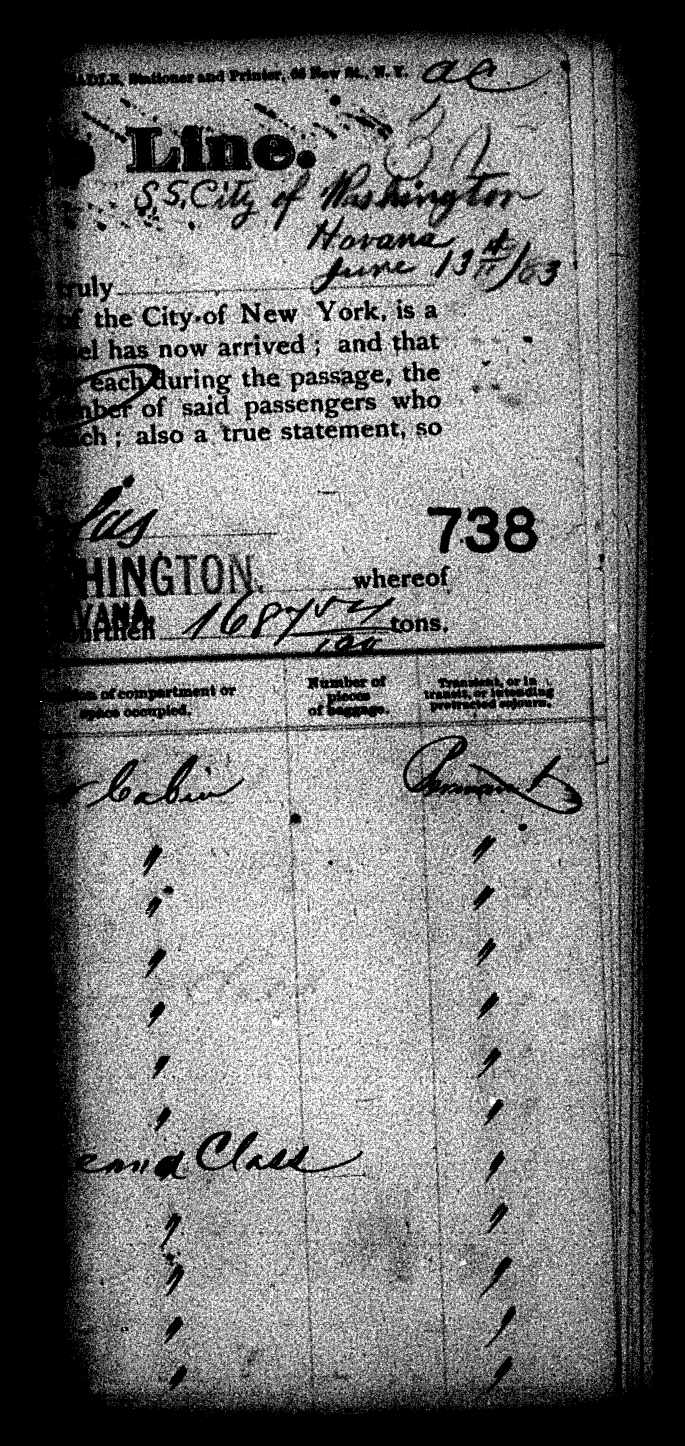 Stationer and Printer, 66 New St., N.Y. ac
Line.
S.S. City of Washington
Havana
June 13th/83
truly
of the City of New York, is a
has now arrived; and that
each during the passage, the
of said passengers who
also a true statement, so
738
HINGTON. whereof
VANA.
1687 tons.
of compartment or
space occupied.
Number of
pieces
of baggage.
Transient, or in
transit, or intending
protracted sojourn.
Cabin Permant
" "
" "
" "
" "
" "
" "
Class "
" "
" "
" "
" "